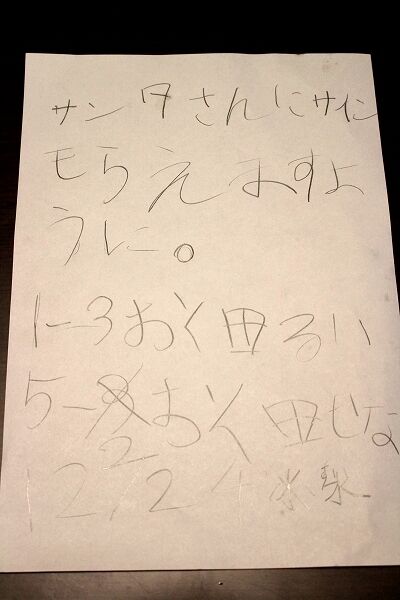 サンタさんにサイン
もらえますよ
うに。
1-3おく田るい
5-2おく田じな
12/24